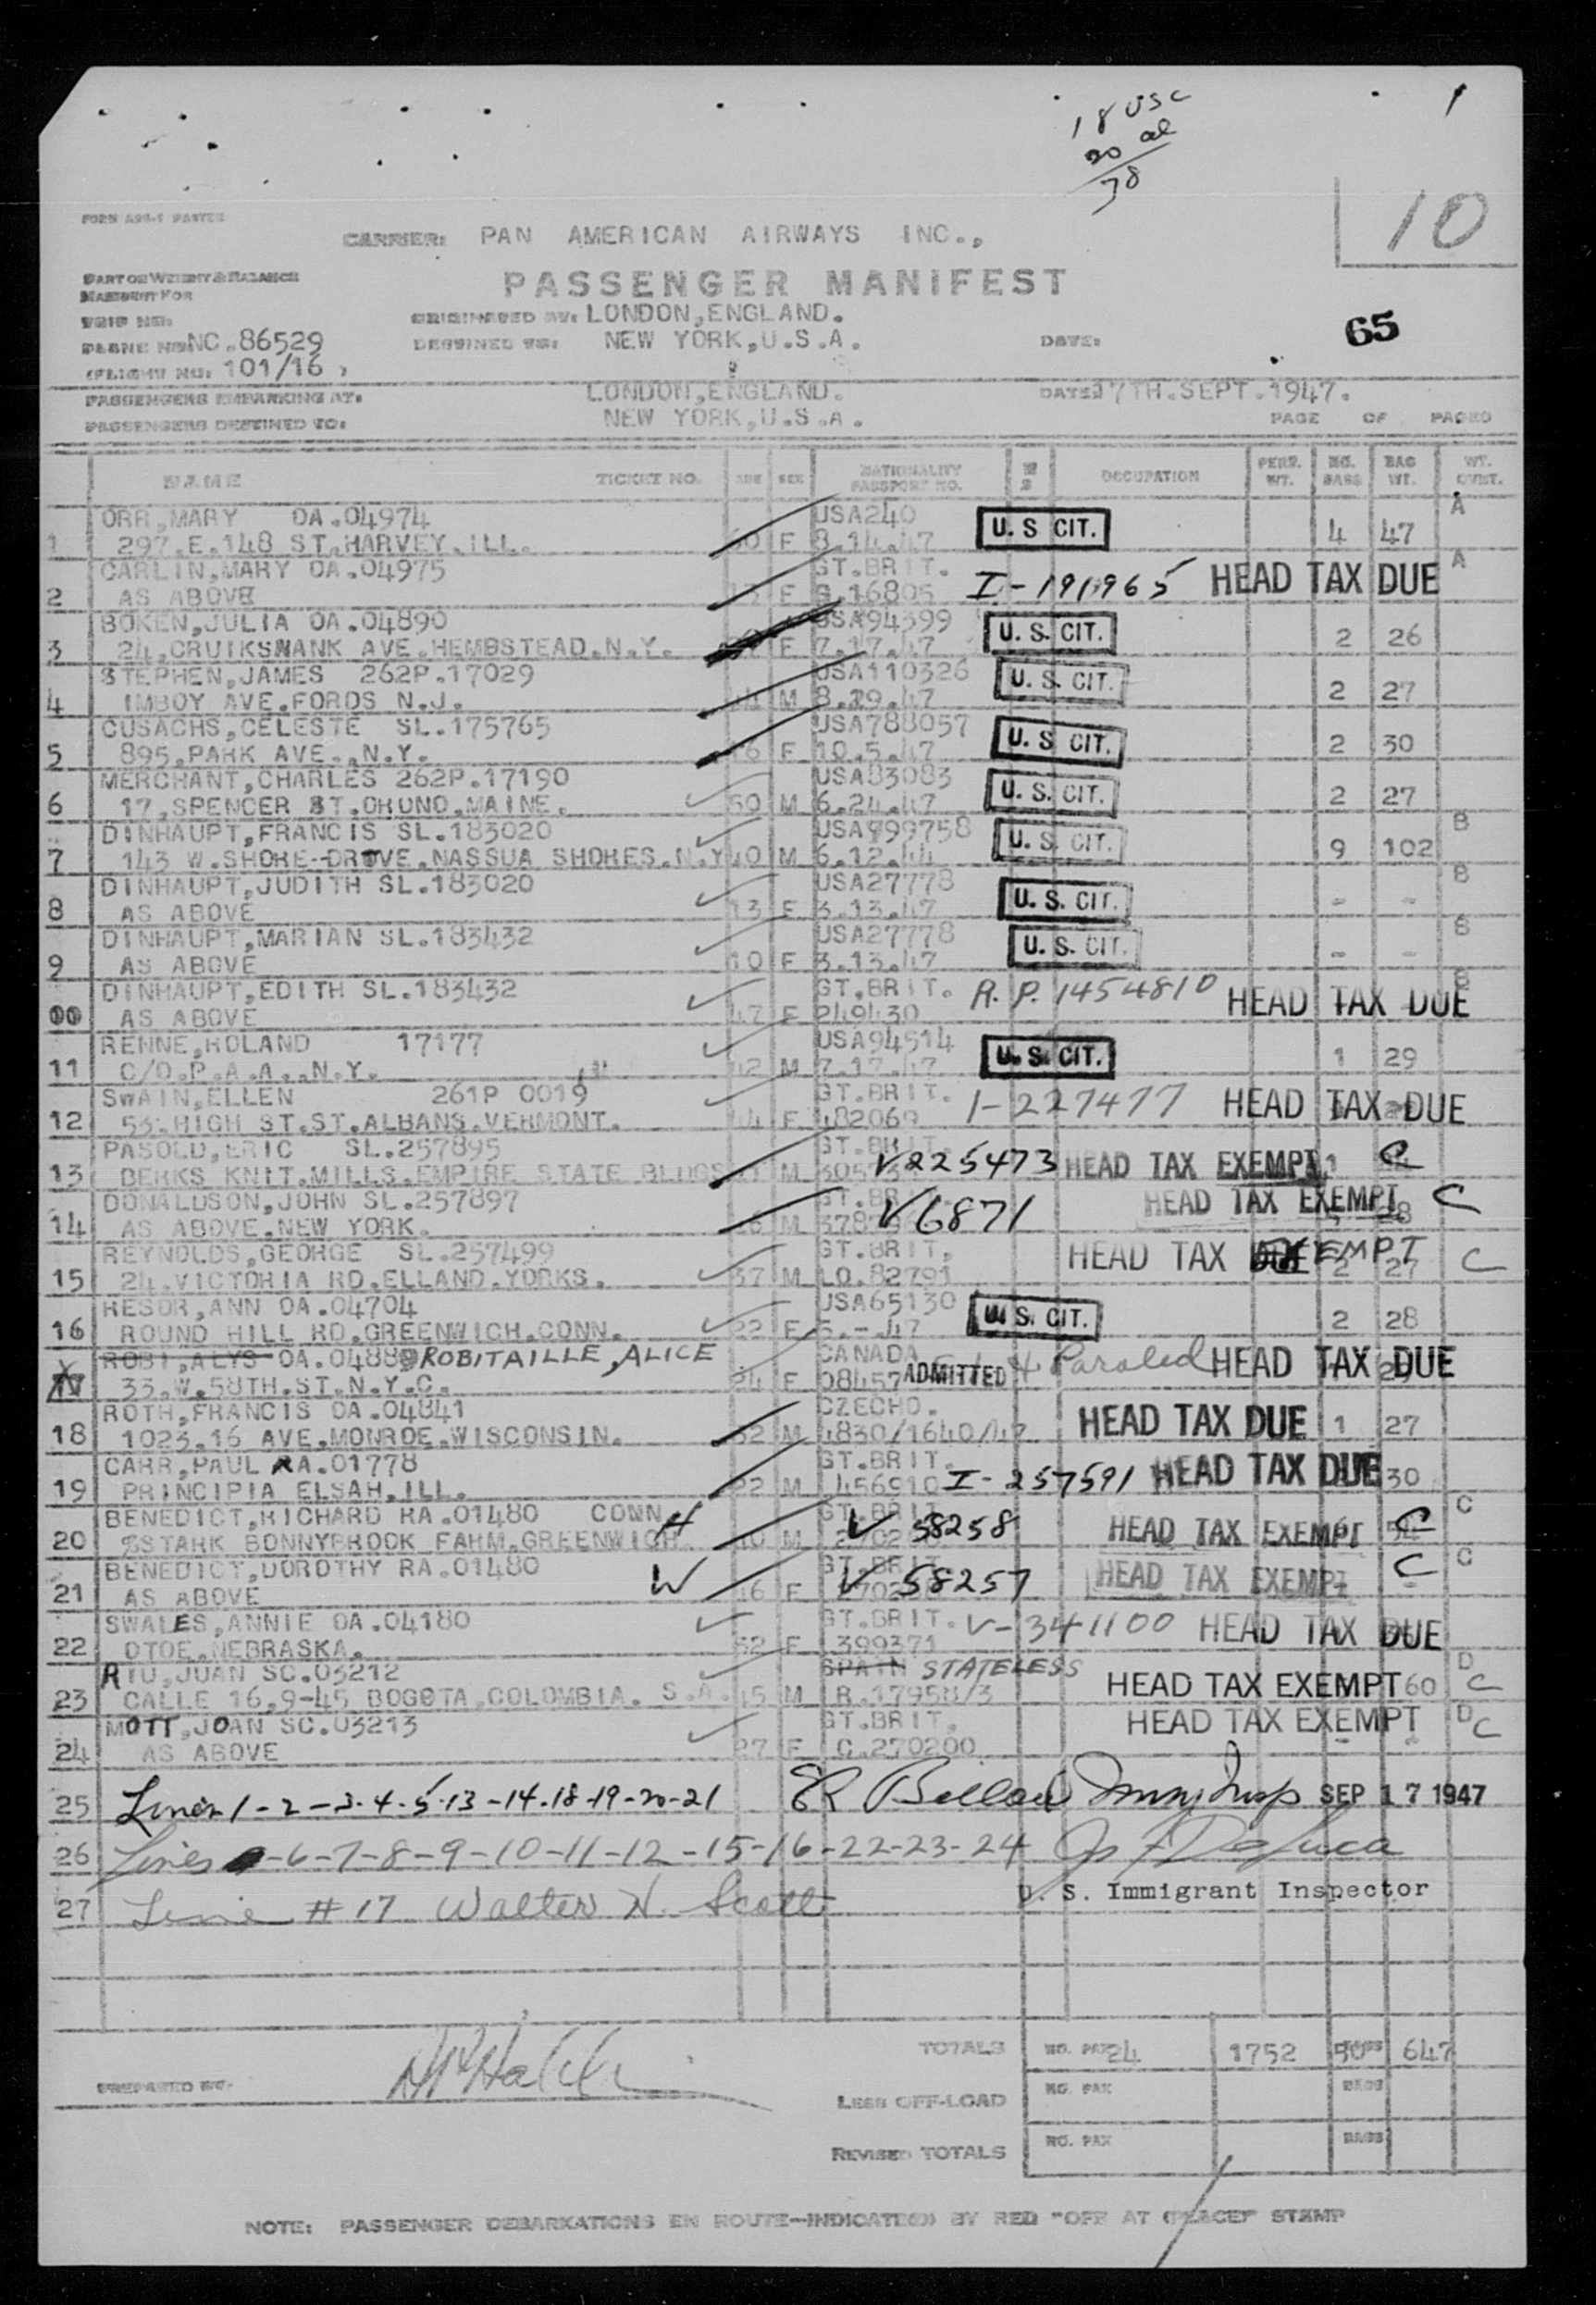 18 USC
20 al
38
10
FORM
CARRIER: PAN AMERICAN AIRWAYS INC.,
PART OF WEIGHT & BALANCE
MANIFEST FOR
PASSENGER MANIFEST
TRIP NO:
ORIGINATED AT: LONDON,ENGLAND.
65
PLANE NO: NC.86529
DESTINED TO: NEW YORK,U.S.A.
DATE:
(FLIGHT NO: 101/16 )
PASSENGERS EMBARKING AT: LONDON,ENGLAND. DATE: 17TH.SEPT.1947.
PASSENGERS DESTINED TO: NEW YORK,U.S.A. PAGE OF PAGES
NAME TICKET NO. AGE SEX NATIONALITY PASSPORT NO. OCCUPATION PERS. WT. NO. BAGS BAG WT. WT.
ORR,MARY OA.04974 USA240 A
1 297.E.148 ST.HARVEY.ILL. F 8.14.47 U. S CIT. 4 47
CARLIN,MARY OA.04975 GT.BRIT. A
2 AS ABOVE F 9.16805 I-191965 HEAD TAX DUE
BOKEN,JULIA OA.04890 USA94399
3 24,CRUIKSHANK AVE.HEMBSTEAD.N.Y. F 7.17.47 U. S. CIT. 2 26
STEPHEN,JAMES 262P.17029 USA110326
4 IMBOY AVE.FORDS N.J. M 8.29.47 U. S. CIT. 2 27
CUSACHS,CELESTE SL.175765 USA788057
5 895.PARK AVE..N.Y. F 10.5.47 U. S CIT. 2 30
MERCHANT,CHARLES 262P.17190 USA83083
6 17,SPENCER ST.ORUNO.MAINE. 60 M 6.24.47 U. S. CIT. 2 27
DINHAUPT,FRANCIS SL.183020 USA799758 B
7 143 W.SHORE-DROVE.NASSUA SHORES.N.Y 40 M 6.12.44 U. S. CIT. 9 102
DINHAUPT,JUDITH SL.183020 USA27778 B
8 AS ABOVE 13 F 3.13.47 U. S. CIT. - -
DINHAUPT,MARIAN SL.183432 USA27778 B
9 AS ABOVE 10 F 3.13.47 U. S. CIT. - -
DINHAUPT,EDITH SL.183432 GT.BRIT. R.P. 1454810 HEAD TAX DUE B
10 AS ABOVE 47 F 249430
RENNE,ROLAND 17177 USA94514
11 C/O.P.A.A..N.Y. 42 M 7.17.47 U. S. CIT. 1 29
SWAIN,ELLEN 261P 0019 GT.BRIT.
12 53.HIGH ST.ST.ALBANS.VERMONT. 44 F 482069 I-227477 HEAD TAX DUE
PASOLD,ERIC SL.257895 GT.BRIT.
13 BERKS KNIT.MILLS.EMPIRE STATE BLDGS M V225473 HEAD TAX EXEMPT 1 C
DONALDSON,JOHN SL.257897 GT.BR
14 AS ABOVE.NEW YORK. M V6871 HEAD TAX EXEMPT 28 C
REYNOLDS,GEORGE SL.257499 GT.BRIT.
15 24.VICTORIA RD.ELLAND.YORKS. 37 M LO.82791 HEAD TAX EXEMPT 2 27 C
RESOR,ANN OA.04704 USA65130
16 ROUND HILL RD.GREENWICH.CONN. 22 F 5.-.47 U. S. CIT. 2 28
ROBI,ALYS OA.04889 ROBITAILLE, ALICE CANADA
17 33.W.58TH.ST.N.Y.C. 24 F 08457 ADMITTED & Paroled HEAD TAX DUE
ROTH,FRANCIS OA.04841 CZECHO.
18 1023.16 AVE.MONROE.WISCONSIN. 52 M 4830/1640/47 HEAD TAX DUE 1 27
CARR,PAUL RA.01778 GT.BRIT.
19 PRINCIPIA ELSAH.ILL. 22 M 456910 I-257591 HEAD TAX DUE 30
BENEDICT,RICHARD RA.01480 CONN GT.BRIT C
20 %STARK BONNYBROOK FARM.GREENWICH. M V 58258 HEAD TAX EXEMPT C
BENEDICT,DOROTHY RA.01480 GT.BRIT C
21 AS ABOVE W F V 58257 HEAD TAX EXEMPT C
SWALES,ANNIE OA.04180 GT.BRIT. V-341100 HEAD TAX DUE
22 OTOE.NEBRASKA. 52 F 399371
RIU,JUAN SC.03212 SPAIN STATELESS D
23 CALLE 16.9-45 BOGOTA,COLOMBIA. S.A. 45 M R.17958/3 HEAD TAX EXEMPT 60 C
MOTT,JOAN SC.03213 GT.BRIT. HEAD TAX EXEMPT D C
24 AS ABOVE 27 F C.270200
25 Lines 1-2-3-4-5-13-14-18-19-20-21 Immig Insp SEP 17 1947
26 Lines 6-7-8-9-10-11-12-15-16-22-23-24
U. S. Immigrant Inspector
27 Line # 17 Walter N. Scott
TOTALS NO. PAX 24 1752 50 647
PREPARED BY:
LESS OFF-LOAD NO. PAX BAGS
REVISED TOTALS NO. PAX BAGS
NOTE: PASSENGER DEBARKATIONS EN ROUTE—INDICATED BY RED "OFF AT (PLACE)" STAMP